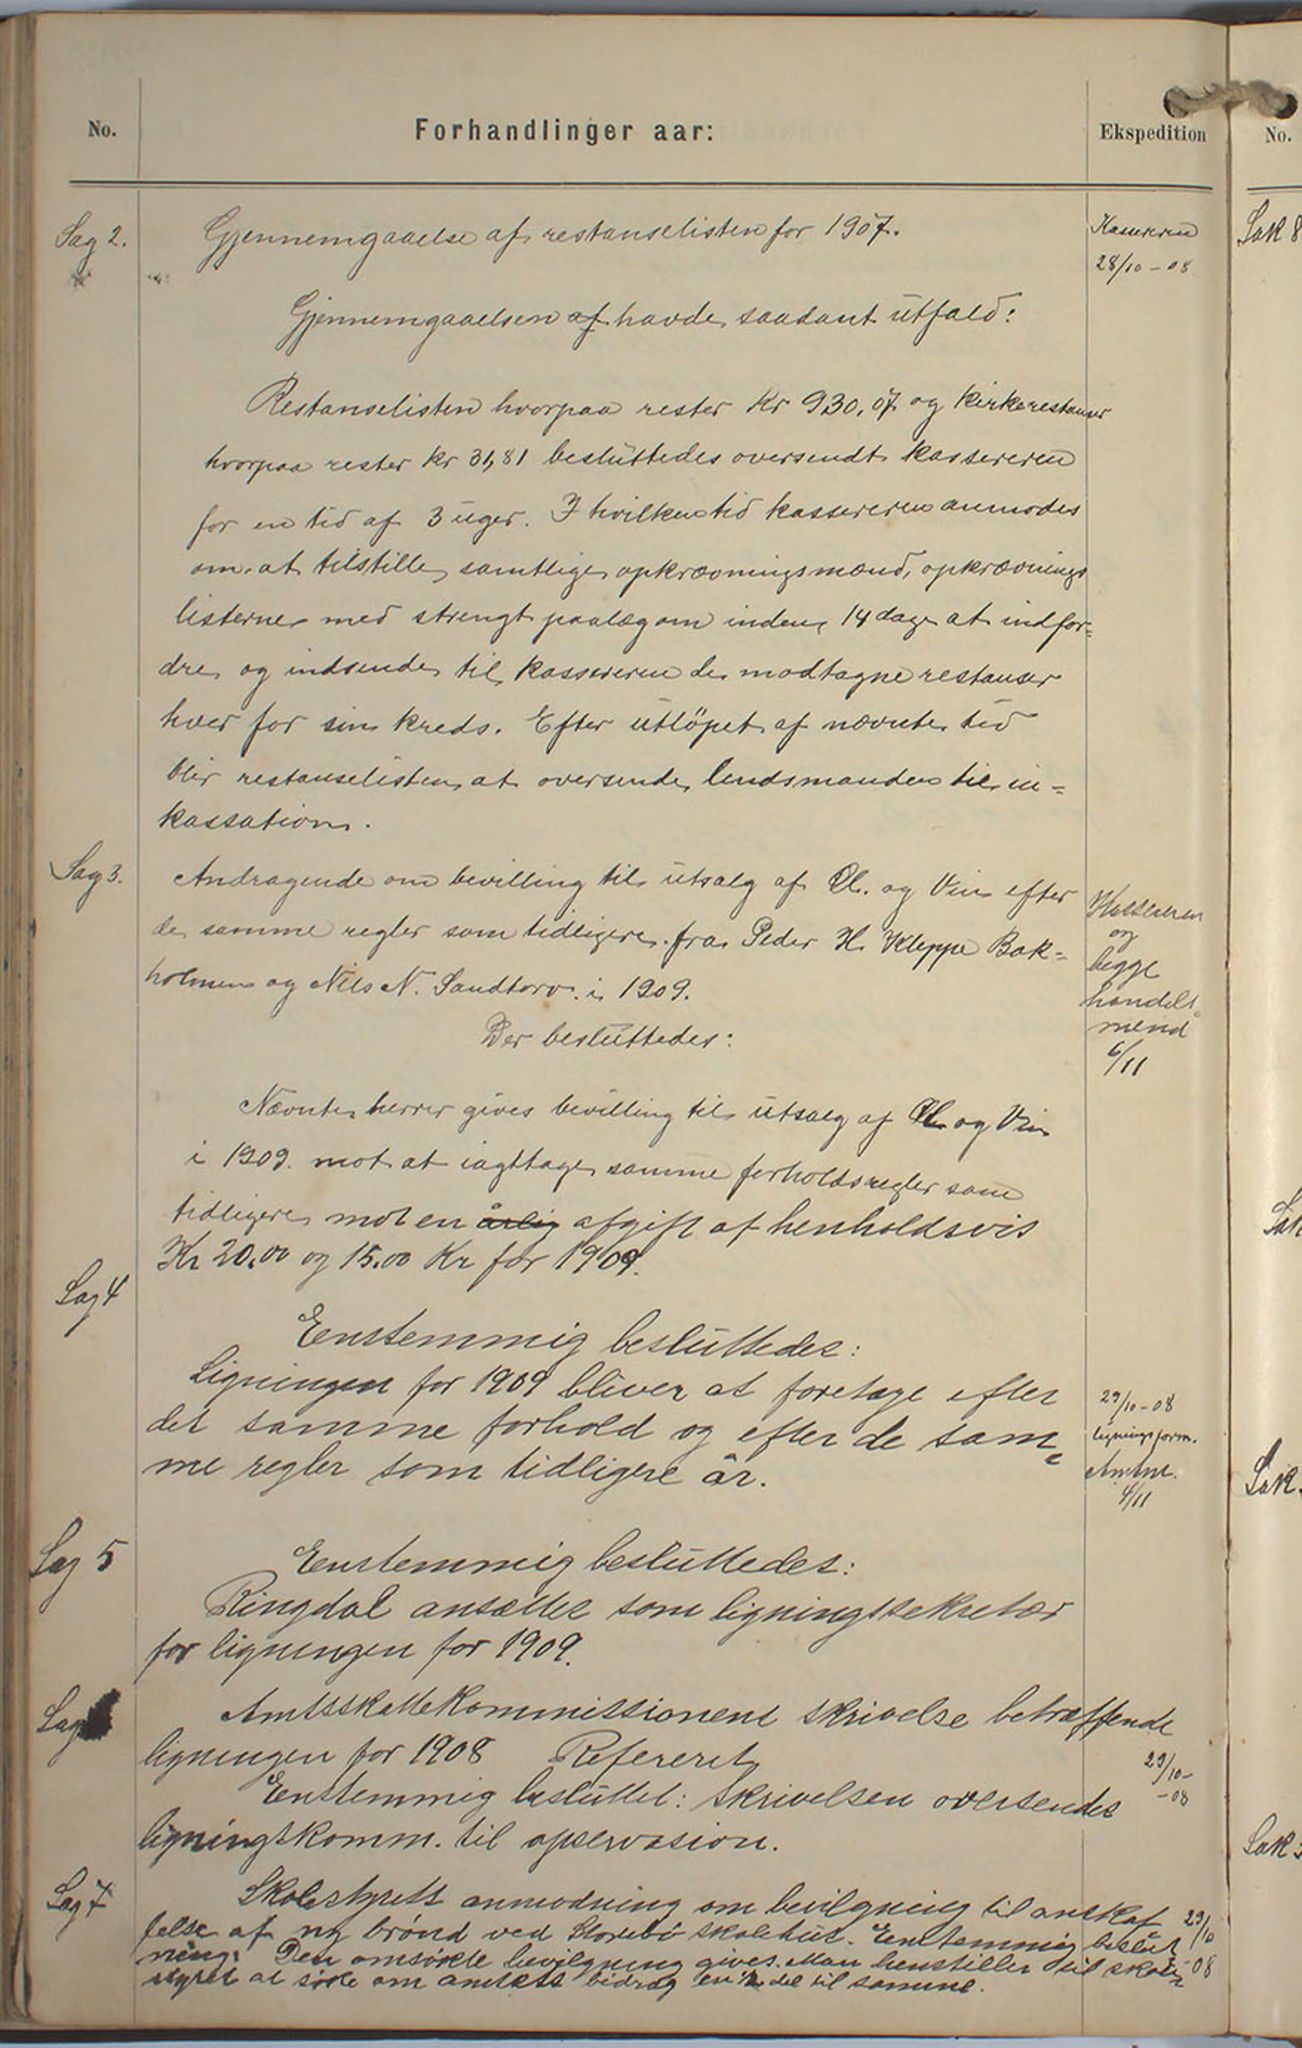 No.
Forhandlinger aar:
Ekspedition
No.
Sag 2.
Gjennemgaaelse af restanselisten for 1907.
Kassereren
28/10 - 08
Sak 8
Gjennemgaaelsen af havde saadant utfald:
Restanselisten hvorpaa rester Kr 930,07 og Kirkerestanser
hvorpaa rester Kr 31,81 besluttedes oversendt kassereren
for en tid af 3 uger. I hvilken tid kassereren anmodes
om at tilstille samtlige opkrævningsmænd, opkrævnings
listerne med strengt paalæg om inden 14 dage at indfor=
dre og indsende til kassereren de modtagne restanser
hver for sin kreds. Efter utløpet af nævnte tid
blir restanselisten at oversende lendsmanden til in=
kassation.
Sag 3.
Andragende om bevilling til utsalg af Øl. og Vin efter
de samme regler som tidligere. fra Peder H. Kleppe Bak=
holmen og Nils N. Sandtorv. i 1909.
Kassereren
og
begge
handels
mend
6/11
Der besluttedes:
Nævnte herrer gives bevilling til utsalg af Øl og Vin
i 1909. mot at iagttage samme forholdsregler som
tidligere mot en årlig afgift af henholdsvis
Kr 20.00 og 15.00 Kr for 1909.
Sag 4
Enstemmig besluttedes:
Ligningen for 1909 bliver at foretage efter
det samme forhold og efter de sam=
me regler som tidligere år.
29/10 - 08
ligningsform.
Amtm.
4/11
Sak
Sag 5
Enstemmig besluttedes:
Ringdal ansættes som ligningssekretær
for ligningen for 1909.
Sag
Amtsskattekommissionens skrivelse betræffende
ligningen for 1908 Refereret
29/10 -
- 08
Enstemmig besluttet: skrivelsen oversendes
ligningskomm. til opservasion.
Sak
Sag 7
Skolestyrets anmodning om bevilgning til anskaf
felse af ny brønd ved Storebø skolehus. Enstemmig beslut
ning: Den omsøkte bevilgning gives. Man henstiller til skole=
styret at søke om amtets bidrag en del til samme.
29/10
08